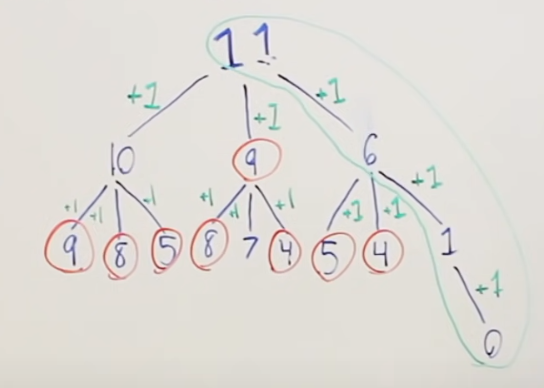 11
+1 +1 +1
10 9 6
+1 +1 +1 +1 +1 +1 +1 +1 +1
9 8 5 8 7 4 5 4 1
+1
0